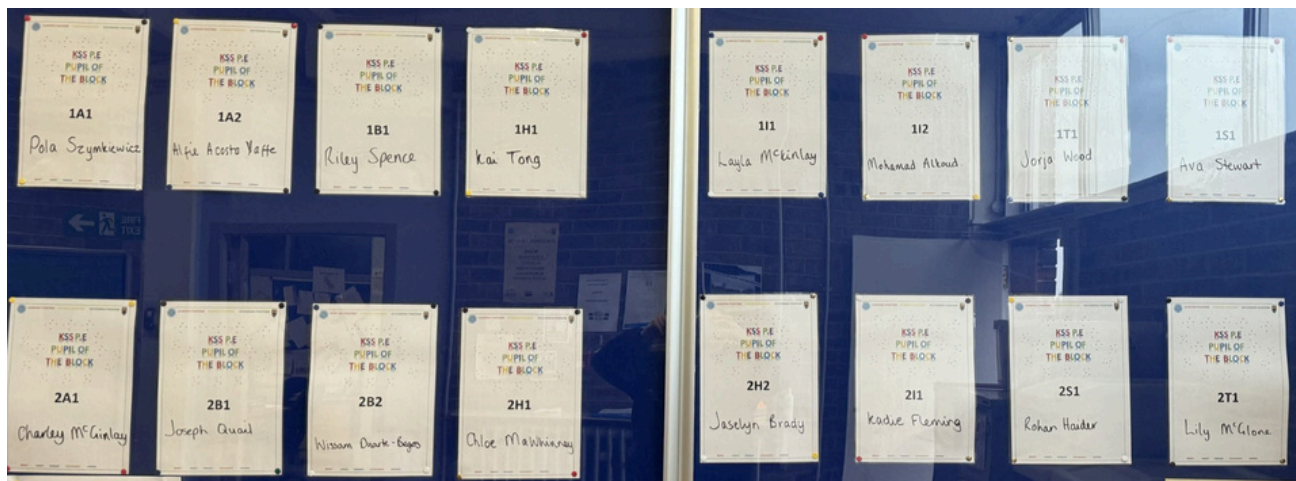 KSS P.E
PUPIL OF
THE BLOCK
1A1
Pola Szymkiewicz
KSS P.E
PUPIL OF
THE BLOCK
1A2
Alfie Acosta Yaffe
KSS P.E
PUPIL OF
THE BLOCK
1B1
Riley Spence
KSS P.E
PUPIL OF
THE BLOCK
1H1
Kai Tong
KSS P.E
PUPIL OF
THE BLOCK
1I1
Layla McKinlay
KSS P.E
PUPIL OF
THE BLOCK
1I2
Mohamad Alkoud
KSS P.E
PUPIL OF
THE BLOCK
1T1
Jorja Wood
KSS P.E
PUPIL OF
THE BLOCK
1S1
Ava Stewart
FIRE
EXIT
KSS P.E
PUPIL OF
THE BLOCK
2A1
Charley McGinlay
KSS P.E
PUPIL OF
THE BLOCK
2B1
Joseph Quail
KSS P.E
PUPIL OF
THE BLOCK
2B2
Wissam
KSS P.E
PUPIL OF
THE BLOCK
2H1
Chloe MaWhinney
KSS P.E
PUPIL OF
THE BLOCK
2H2
Jaselyn Brady
KSS P.E
PUPIL OF
THE BLOCK
2I1
Kadie Fleming
KSS P.E
PUPIL OF
THE BLOCK
2S1
Rohan Haider
KSS P.E
PUPIL OF
THE BLOCK
2T1
Lily McGlone